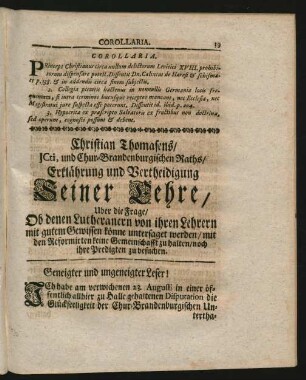 COROLLARIA. 19
COROLLARIA.
Princeps Christianus circa nullum delictorum Levitici XVIII. prohibi-
torum dispensare potest. Dissentit Dn. Calvœus de Hæresi & schisma-
te p. 193. & in addendis circa finem subjectis.
2. Collegia pietatis hodienum in nonnullis Germania locis fre-
quentata, si intra terminos hucusque receptos maneant, nec Ecclesia, nec
Magistratui jure suspecta esse possunt. Dissentit id. ibid. p. 204.
3. Hypocrita ex præscripto Salvatoris ex fructibus non doctrina,
sed operum, cognosci possunt & debent.
Christian Thomasens/
JCti, und Chur-Brandenburgischen Raths/
Erklährung und Vertheidigung
Seiner Lehre/
Uber die Frage/
Ob denen Lutheranern von ihren Lehrern
mit gutem Gewissen könne untersaget werden/ mit
den Reformirten keine Gemeinschafft zu halten/ noch
ihre Predigten zu besuchen.
Geneigter und ungeneigter Leser!
ICh habe am verwichenen 23. Augusti in einer öf-
fentlich allhier zu Halle gehaltenen Disputation die
Glückseeligkeit der Chur-Brandenburgischen Un-
tertha-